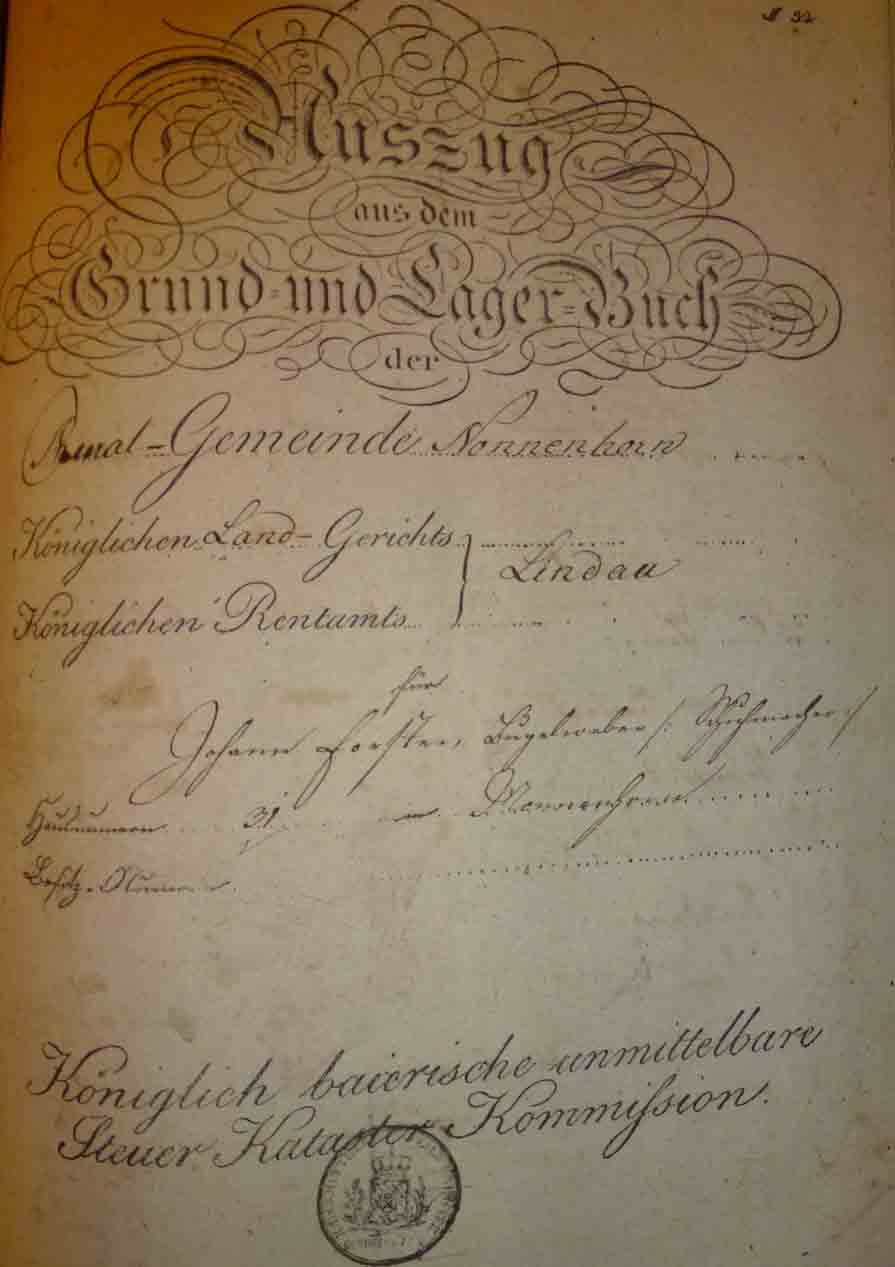 № 32
Auszug
aus dem
Grund- und Lager-Buch
der
Rural-Gemeinde Nonnenhorn
Königlichen Land-Gerichts
Lindau
Königlichen Rentamts
für
Johann Forster, /: Schuhmacher :/
Hausnummern 31 in Nonnenhorn
Besitz-Nummern
Königlich baierische unmittelbare
Steuer Kataster Kommission.